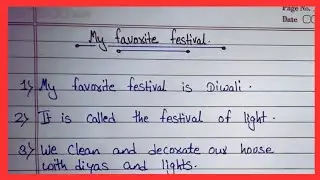 Page No.
Date
My favorite festival.
1) My favorite festival is Diwali.
2) It is called the festival of light.
3) We clean and decorate our house
with diyas and lights.